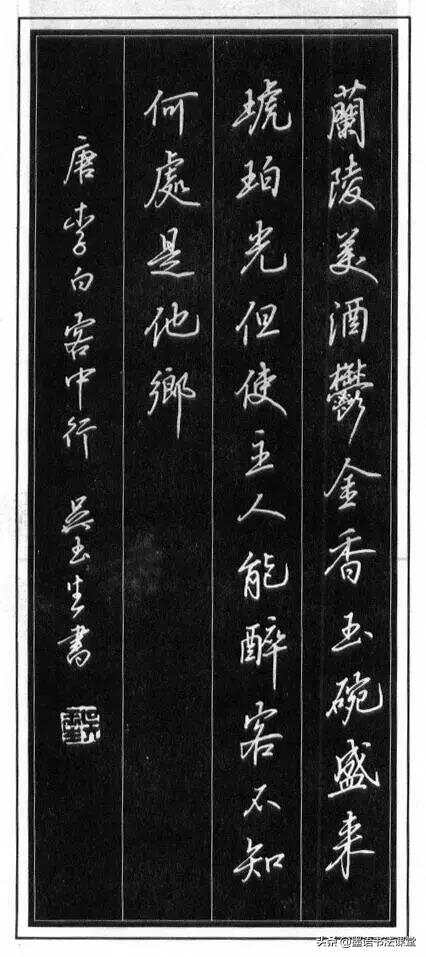 蘭陵美酒鬱金香玉碗盛来
琥珀光但使主人能醉客不知
何處是他鄉
唐李白客中行 吴玉生書
头条@墨语书法课堂